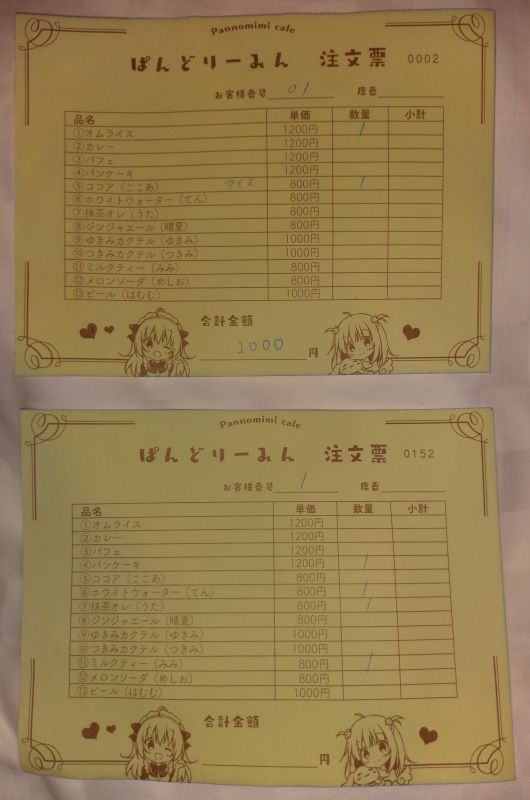 Pannomimi cafe
ぱんどりーみん 注文票 0002
お客様番号 01 席番
品名 単価 数量 小計
①オムライス 1200円 1
②カレー 1200円
③パフェ 1200円
④パンケーキ 1200円
⑤ココア（ここあ） アイス 800円 1
⑥ホワイトウォーター（てん） 800円
⑦抹茶オレ（うた） 800円
⑧ジンジャエール（晴夏） 800円
⑨ゆきみカクテル（ゆきみ） 1000円
⑩つきみカクテル（つきみ） 1000円
⑪ミルクティー（みみ） 800円
⑫メロンソーダ（めしお） 800円
⑬ビール（はむむ） 1000円
合計金額
2000 円
Pannomimi cafe
ぱんどりーみん 注文票 0152
お客様番号 1 席番
品名 単価 数量 小計
①オムライス 1200円
②カレー 1200円
③パフェ 1200円
④パンケーキ 1200円 1
⑤ココア（ここあ） 800円
⑥ホワイトウォーター（てん） 800円 1
⑦抹茶オレ（うた） 800円 1
⑧ジンジャエール（晴夏） 800円
⑨ゆきみカクテル（ゆきみ） 1000円
⑩つきみカクテル（つきみ） 1000円
⑪ミルクティー（みみ） 800円 1
⑫メロンソーダ（めしお） 800円
⑬ビール（はむむ） 1000円
合計金額
円